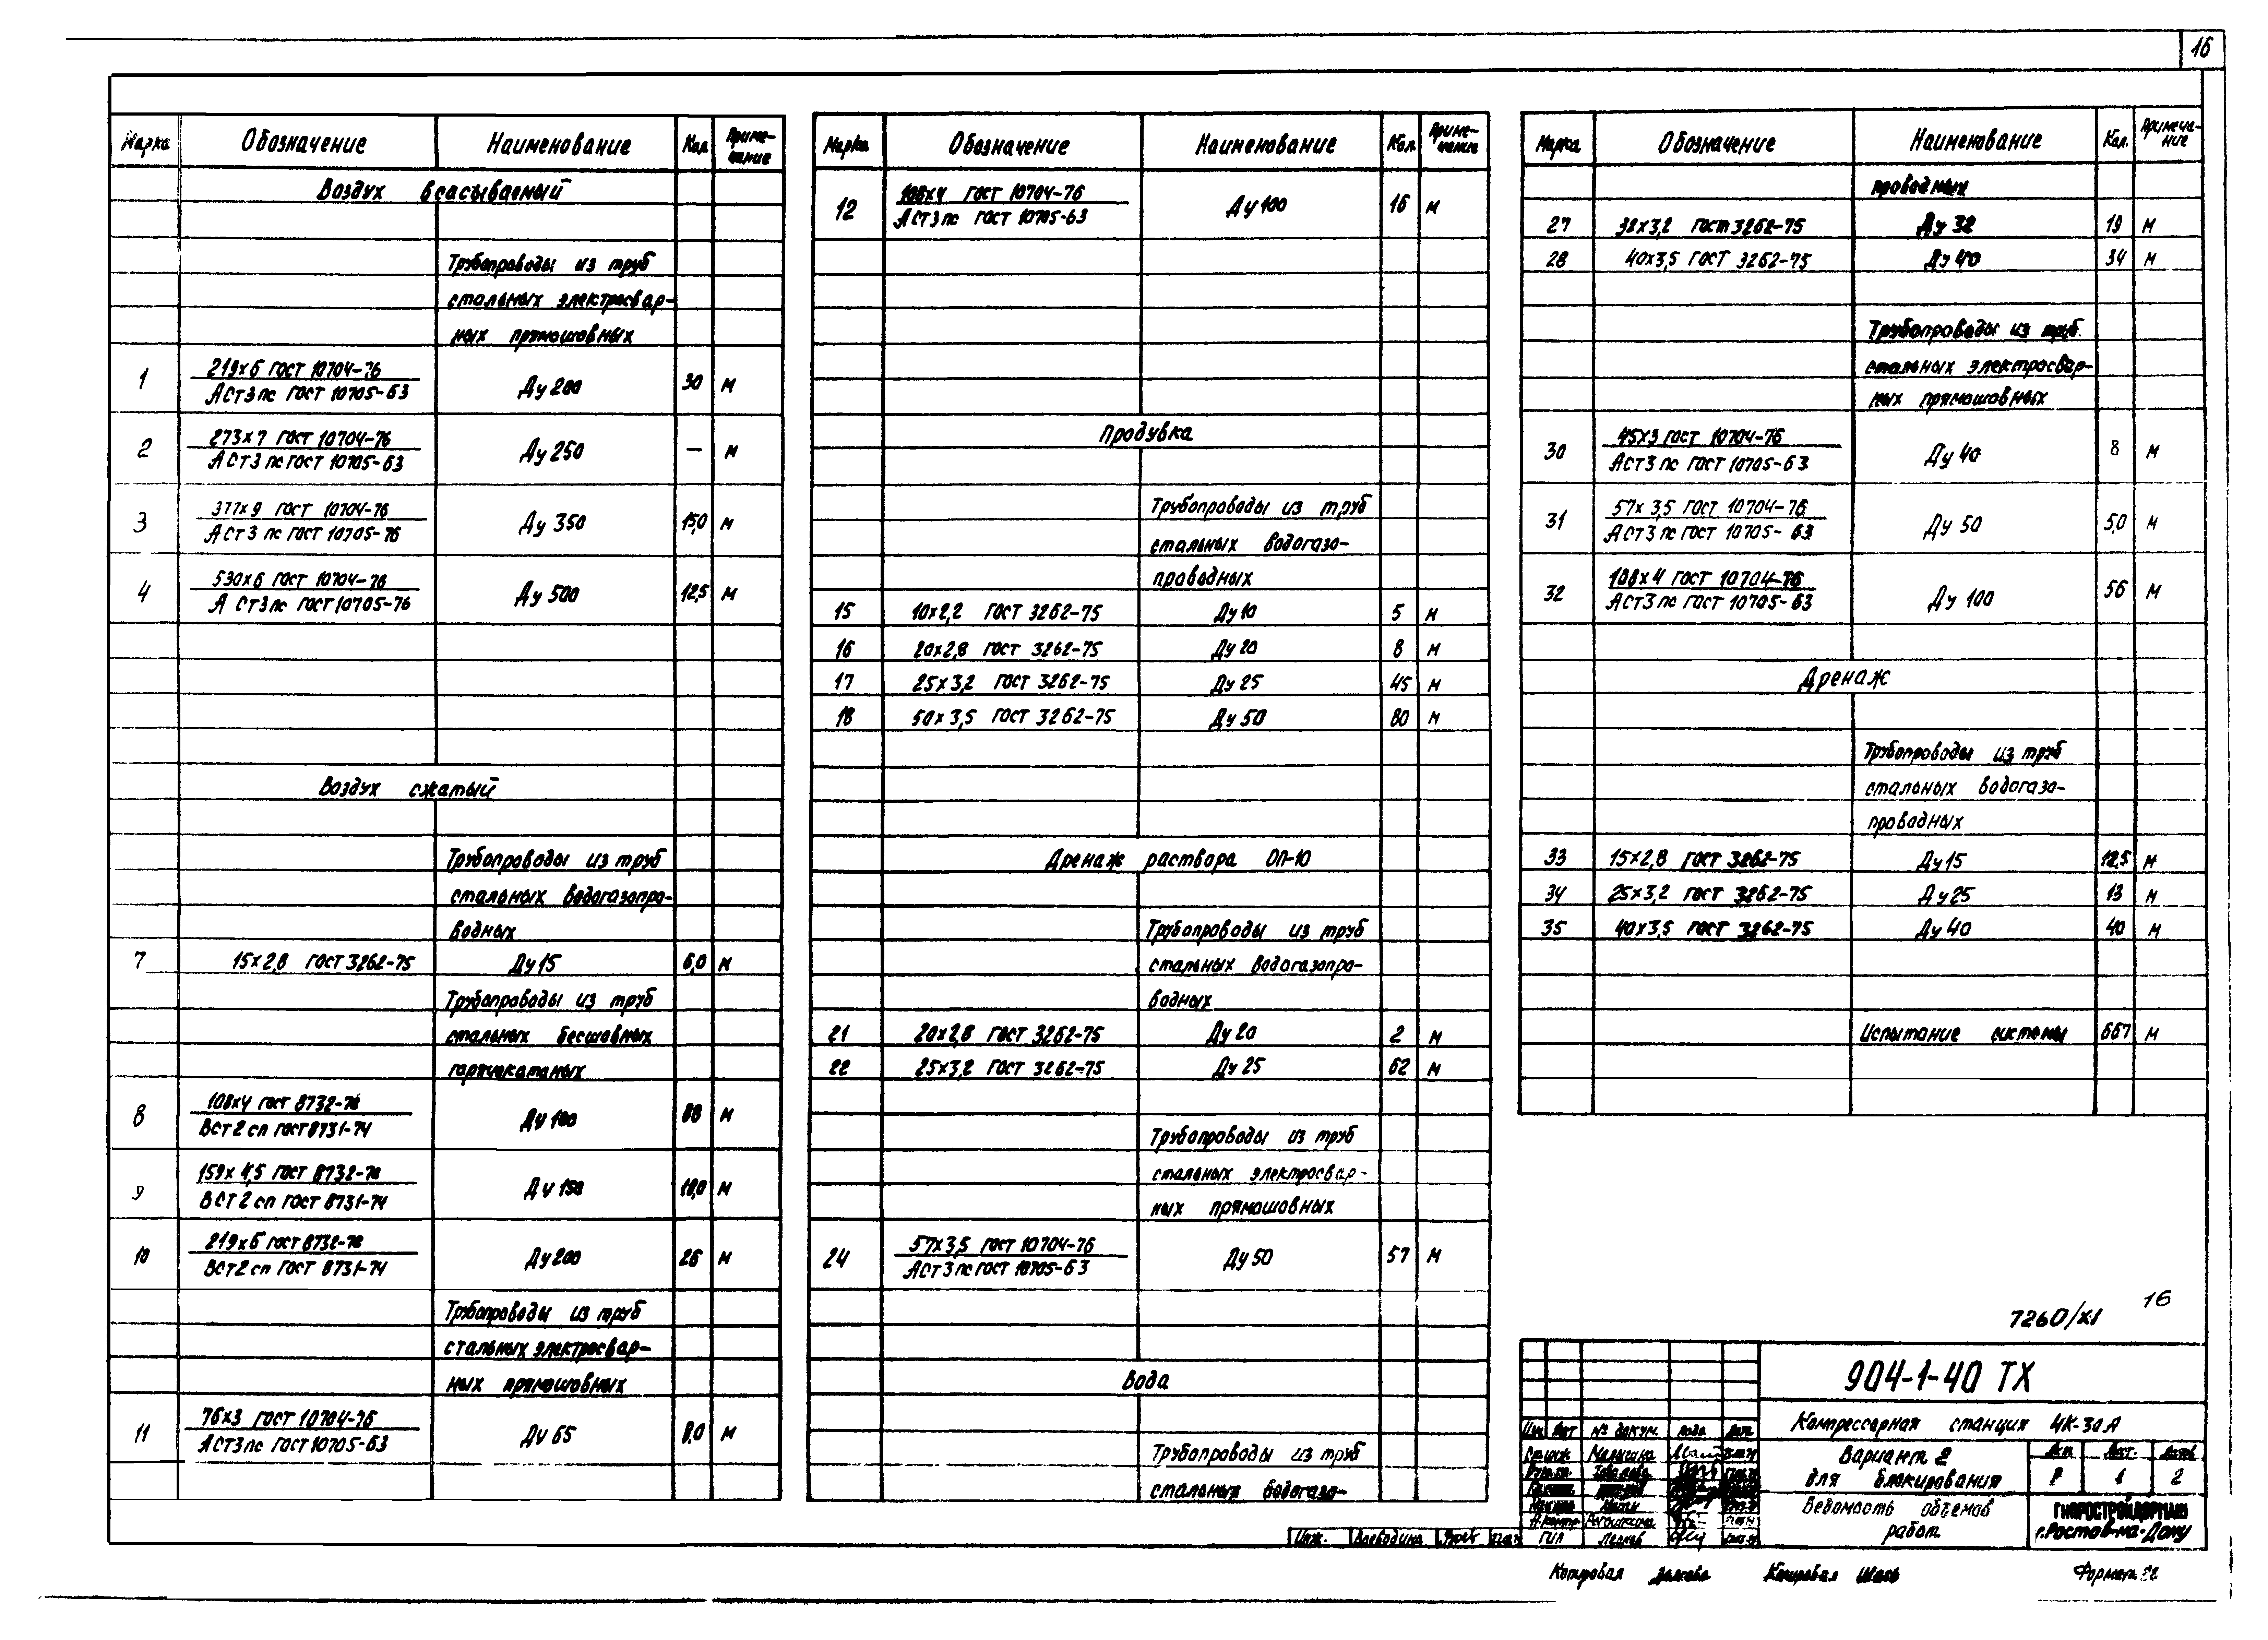 16
Марка Обозначение Наименование Кол. Приме-чание
Воздух всасываемый
Трубопроводы из труб
стальных электросвар-
ных прямошовных
1 219х6 ГОСТ 10704-76 Ду 200 30 м
АСт3пс ГОСТ 10705-63
2 273х7 ГОСТ 10704-76 Ду 250 — м
АСт3пс ГОСТ 10705-63
3 377х9 ГОСТ 10704-76 Ду 350 15,0 м
АСт3пс ГОСТ 10705-76
4 530х6 ГОСТ 10704-76 Ду 500 12,5 м
А Ст3пс ГОСТ 10705-76
Воздух сжатый
Трубопроводы из труб
стальных водогазопро-
водных
7 15х2,8 ГОСТ 3262-75 Ду 15 6,0 м
Трубопроводы из труб
стальных бесшовных
горячекатаных
8 108х4 ГОСТ 8732-78 Ду 100 88 м
ВСт2сп ГОСТ 8731-74
9 159х4,5 ГОСТ 8732-78 Ду 150 18,0 м
ВСт2сп ГОСТ 8731-74
10 219х6 ГОСТ 8732-78 Ду 200 26 м
ВСт2сп ГОСТ 8731-74
Трубопроводы из труб
стальных электросвар-
ных прямошовных
11 76х3 ГОСТ 10704-76 Ду 65 8,0 м
АСт3пс ГОСТ 10705-63
Марка Обозначение Наименование Кол. Приме-чание
12 108х4 ГОСТ 10704-76 Ду 100 16 м
АСт3пс ГОСТ 10705-63
Продувка
Трубопроводы из труб
стальных водогазо-
проводных
15 10х2,2 ГОСТ 3262-75 Ду 10 5 м
16 20х2,8 ГОСТ 3262-75 Ду 20 8 м
17 25х3,2 ГОСТ 3262-75 Ду 25 45 м
18 50х3,5 ГОСТ 3262-75 Ду 50 80 м
Дренаж раствора ОП-10
Трубопроводы из труб
стальных водогазопро-
водных
21 20х2,8 ГОСТ 3262-75 Ду 20 2 м
22 25х3,2 ГОСТ 3262-75 Ду 25 62 м
Трубопроводы из труб
стальных электросвар-
ных прямошовных
24 57х3,5 ГОСТ 10704-76 Ду 50 57 м
АСт3пс ГОСТ 10705-63
Вода
Трубопроводы из труб
стальных водогазо-
Марка Обозначение Наименование Кол. Примеча-ние
проводных
27 32х3,2 ГОСТ 3262-75 Ду 32 19 м
28 40х3,5 ГОСТ 3262-75 Ду 40 34 м
Трубопроводы из труб
стальных электросвар-
ных прямошовных
30 45х3 ГОСТ 10704-76 Ду 40 8 м
АСт3пс ГОСТ 10705-63
31 57х3,5 ГОСТ 10704-76 Ду 50 5,0 м
АСт3пс ГОСТ 10705-63
32 108х4 ГОСТ 10704-76 Ду 100 56 м
АСт3пс ГОСТ 10705-63
Дренаж
Трубопроводы из труб
стальных водогазо-
проводных
33 15х2,8 ГОСТ 3262-75 Ду 15 12,5 м
34 25х3,2 ГОСТ 3262-75 Ду 25 13 м
35 40х3,5 ГОСТ 3262-75 Ду 40 40 м
Испытание системы 667 м
7260/XI 16
904-1-40 ТХ
Компрессорная станция 4К-30А
Вариант 2
для блокирования
Лит. Лист. Листов
Р 1 2
Ведомость объемов
работ
ГИПРОСТРОЙДОРМАШ
г.Ростов-на-Дону
Изм Лист № докум. Подп Дата
Ст.инж Малыгина
ГИП
Инж.
Копировал
Копировал
Формат 22